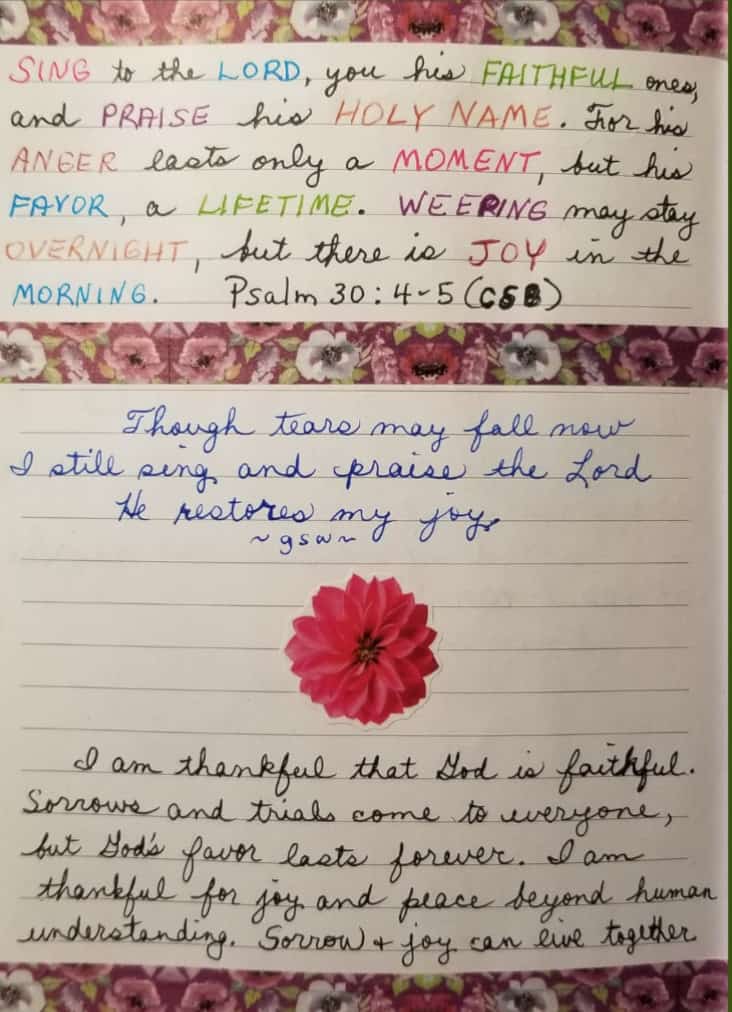 SING to the LORD, you his FAITHFUL ones,
and PRAISE his HOLY NAME. For his
ANGER lasts only a MOMENT, but his
FAVOR, a LIFETIME. WEEPING may stay
OVERNIGHT, but there is JOY in the
MORNING. Psalm 30:4-5 (CSB)
Though tears may fall now
I still sing and praise the Lord
He restores my joy.
~gsw~
I am thankful that God is faithful.
Sorrows and trials come to everyone,
but God's favor lasts forever. I am
thankful for joy and peace beyond human
understanding. Sorrow + joy can live together